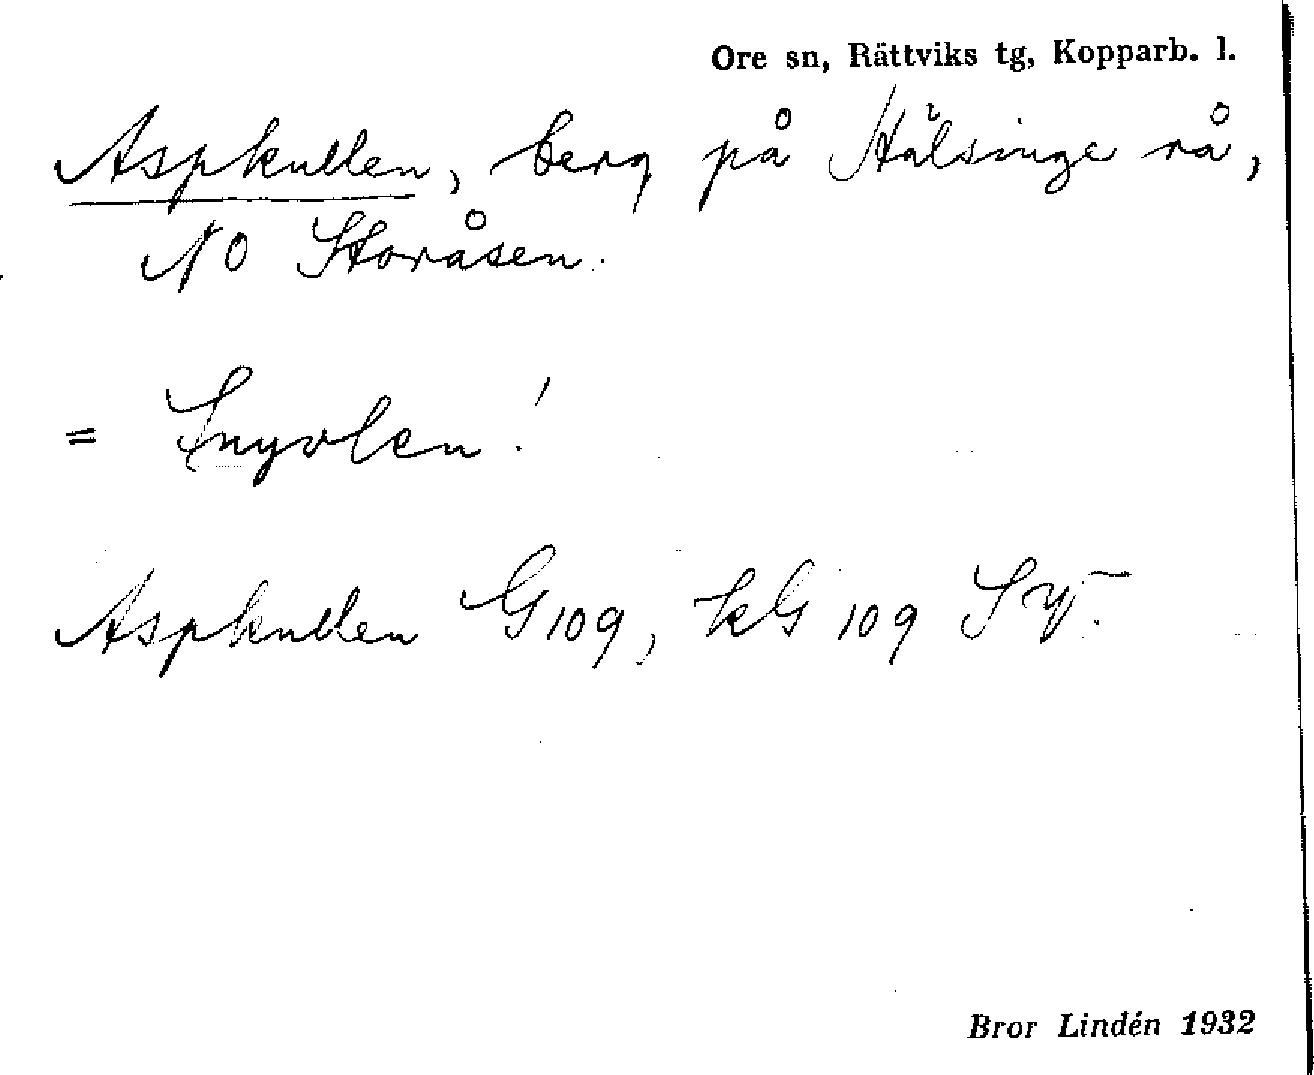 Ore sn, Rättviks tg, Kopparb. l.
Aspkullen, berg på Hälsinge rå,
NO Storåsen.
= Snyolen!
Aspkullen G 109, kG 109 SV.
Bror Lindén 1932